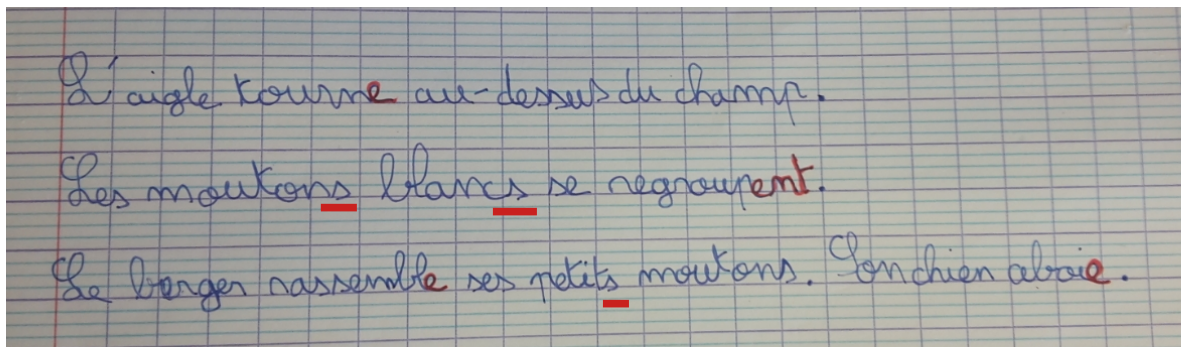 L'aigle tourne au-dessus du champ.
Les moutons blancs se regroupent.
Le berger rassemble ses petits moutons. Son chien aboie.